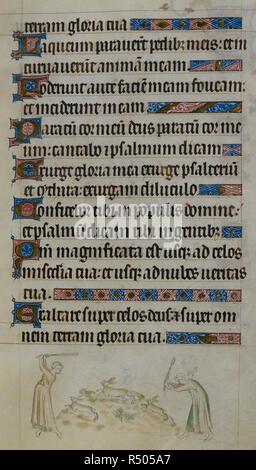 terram gloria tua
Laqueum paraverunt pedib; meis: et in
curvaverunt animam meam.
Foderunt ante faciem meam foveam:
et inciderunt in eam.
Paratum cor meum deus paratum cor me
um: cantabo et psalmum dicam.
Exurge gloria mea exurge psalterium
et cythara: exurgam diluculo.
Confitebor tibi in populis domine:
et psalmum dicam tibi in gentibus.
Qm magnificata est usq; ad celos
misericordia tua: et usq; ad nubes veritas
tua.
Exaltare super celos deus: et super om
nem terram gloria tua.
alamy
Image ID: R505A7
www.alamy.com